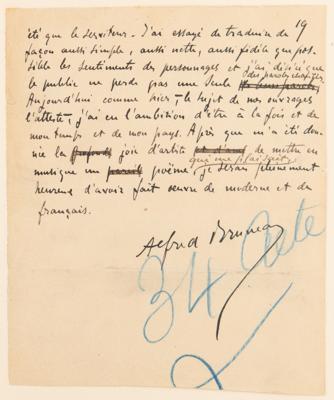 été que le serviteur. J'ai essayé de traduire de 19
façon aussi simple, aussi nette, aussi fidèle que pos-
sible les sentiments des personnages et j'ai désiré que
le public ne perde pas une seule
des paroles chantées.
Aujourd'hui comme hier, le sujet de mes ouvrages
l'atteste, j'ai eu l'ambition d'être à la fois et de
mon temps et de mon pays. Après que m'a été don-
née la joie d'artiste de mettre en
qui me plaisait,
musique un poème, je serai pleinement
heureux d'avoir fait œuvre de moderne et de
français.
Alfred Bruneau
34